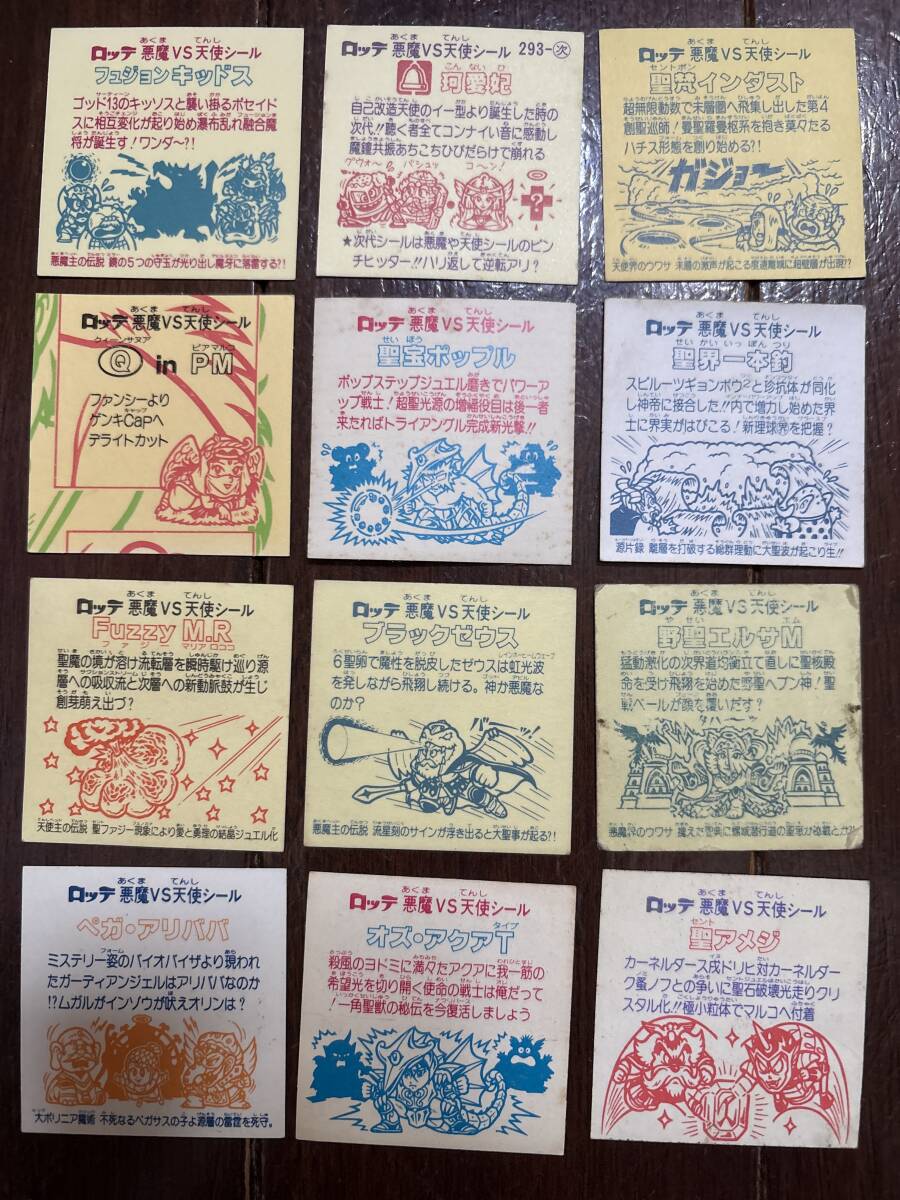 ロッテ 悪魔VS天使シール
フュジョンキッドス
ゴッド13のキッソスと襲い掛るポセイド
スに相互変化が起り始め瀑布乱れ融合魔
将が誕生す!ワンダ〜?!
悪魔主の伝説 鏡の5つの守玉が光り出し魔牙に落雷する?!
ロッテ 悪魔VS天使シール 293-次
珂愛妃
自己改造天使のイー型より誕生した時の
次代!!聴く者全てコンナイい音に感動し
魔鐘共振あちこちひびだらけで崩れる
グウォ〜 パシュッ コ〜ン!
★次代シールは悪魔や天使シールのピン
チヒッター!!ハリ返して逆転アリ?
ロッテ 悪魔VS天使シール
聖梵インダスト
超無限動数で未層圏へ飛集し出した第4
創聖巡師!曼聖羅曼枢系を抱き莫々たる
ハチス形態を創り始める?!
ガジョー
天使界のウワサ 未層の激声が起こる度遠離域に超壁層が出現?!
ロッテ 悪魔VS天使シール
Q in PM
ファンシーより
ゲンキCapへ
デライトカット
ロッテ 悪魔VS天使シール
聖宝ポップル
ポップステップジュエル磨きでパワーア
ップ戦士!超聖光源の増幅役目は後一者
来たればトライアングル完成新光撃!!
ロッテ 悪魔VS天使シール
聖界一本釣
スピルーツギョンボウ2と珍抗体が同化
し神帝に接合した!!内で増力し始めた界
士に界実がはびこる!新理球界を把握?
源片録 離層を打破する総群理動に大聖波が起こり生!!
ロッテ 悪魔VS天使シール
Fuzzy M.R
聖魔の境が溶け流転層を瞬時駆け巡り源
層への吸収流と次層への新動脈鼓が生じ
創芽萌え出づ?
天使主の伝説 聖ファジー現象により愛と勇理の結晶ジュエル化
ロッテ 悪魔VS天使シール
ブラックゼウス
6聖卵で魔性を脱皮したゼウスは虹光波
を発しながら飛翔し続ける。神か悪魔な
のか?
悪魔主の伝説 流星刻のサインが浮き出ると大聖事が起る?!
ロッテ 悪魔VS天使シール
野聖エルサM
猛動激化の次界道均衡立て直しに聖核殿
命を受け飛翔を始めた野聖ヘブン神!聖
戦ベールが顔を覆いだす?
タハ〜ッ
ロッテ 悪魔VS天使シール
ペガ・アリババ
ミステリー姿のバイオバイザより現われ
たガーディアンジェルはアリババなのか
!?ムガルがインゾウが吠えオリンは?
大ボリニア魔術 不死なるペガサスの子よ源層の雷霆を死守。
ロッテ 悪魔VS天使シール
オズ・アクアT
殺風のヨドミに満々たアクアに我一筋の
希望光を切り開く使命の戦士は俺だって
!一角聖獣の秘伝を今復活しましょう
ロッテ 悪魔VS天使シール
聖アメジ
カーネルダース戌ドリヒ対カーネルダー
ク蚤ノフとの争いに聖石破壊光走りクリ
スタル化!!極小粒体でマルコへ付着